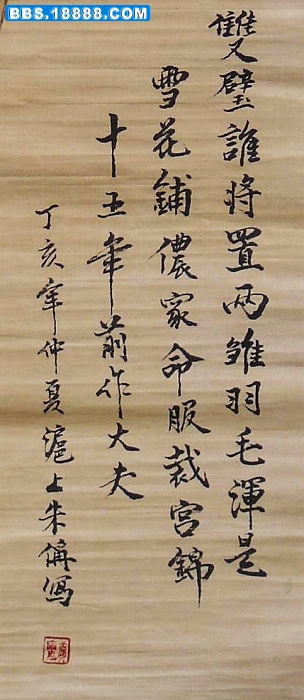 BBS.18888.COM
雙璧誰將置兩雛羽毛渾是
雪花鋪儂家命服裁宮錦
十五年前作大夫
丁亥年仲夏滬上朱偁寫